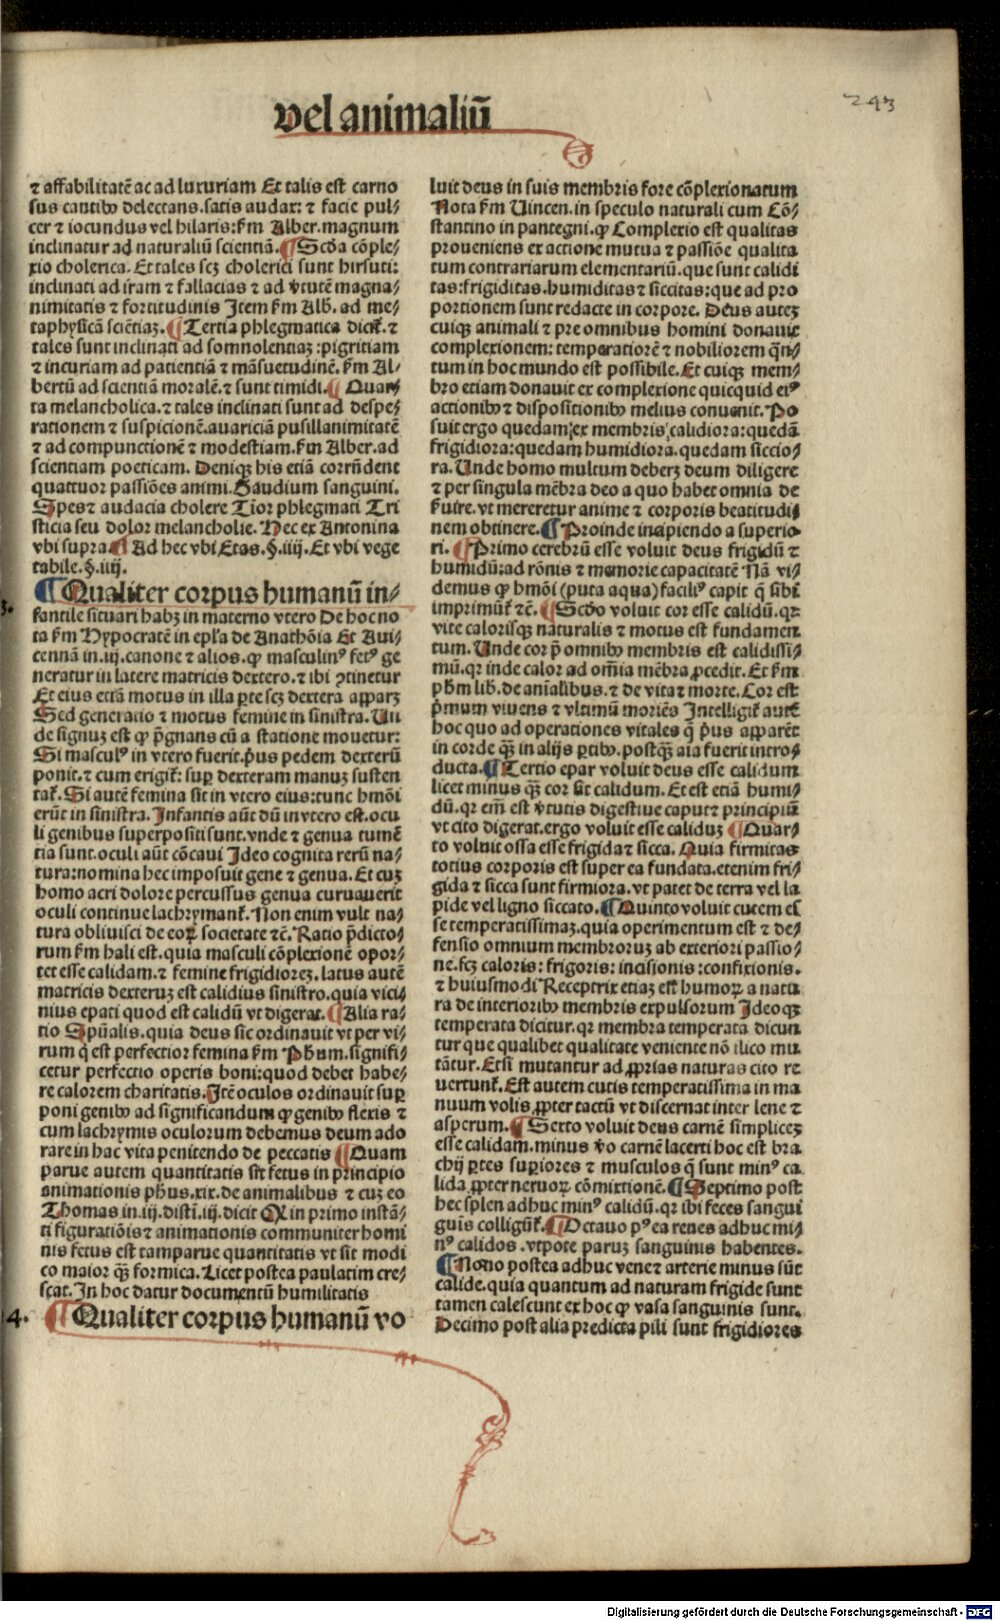 vel animaliū
243
⁊ affabilitatē ac ad luxuriam Et talis est carno
sus cantibꝰ delectans. satis audax: ⁊ facie pul⸗
cer ⁊ iocundus vel hilaris: ẜm Alber. magnum
inclinatur ad naturaliū scientiā. ¶ Scḋa cōple⸗
xio cholerica. Et tales scꝫ cholerici sunt hirsuti:
inclinati ad iram ⁊ fallacias ⁊ ad v̓tutē magna⸗
nimitatis ⁊ fortitudinis Item ẜm Alb. ad me⸗
taphysicā sciētiaꝫ. ¶ Tertia phlegmatica dicit̉. ⁊
tales sunt inclinati ad somnolentiaꝫ: pigritiam
⁊ incuriam ad patientiā ⁊ māsuetudinē. ẜm Al⸗
bertū ad scientiā moralē. ⁊ sunt timidi. ¶ Quar⸗
ta melancholica. ⁊ tales inclinati sunt ad despe⸗
rationem ⁊ suspicionē. auariciā pusillanimitatē
⁊ ad compunctionē ⁊ modestiam. ẜm Alber. ad
scientiam poeticam. Deniqꝫ his etiā corrn̄dent
quattuor passiōes animi. Gaudium sanguini.
Spes ⁊ audacia cholere Tīor phlegmati Tri
sticia seu dolor melancholie. Hec ex Antonina
vbi supra. ¶ Ad hec vbi Etas. §. iiij. Et vbi vege
tabile. §. iiij.
¶ Qualiter corpus humanū in⸗
fantile situari habꝫ in materno vtero De hoc no
ta ẜm Hypocratē in ep̄la de Anathōia Et Aui⸗
cennā in. iij. canone ⁊ alios. ꝙ masculinꝰ fetꝰ ge
neratur in latere matricis dextero. ⁊ ibi ꝯtinetur
Et eius etiā motus in illa ꝑte scꝫ dextera apparꝫ
Sed generatio ⁊ motus femine in sinistra. Un
de signuꝫ est ꝙ p̄gnans cū a statione mouetur:
Si masculꝰ in vtero fuerit. p̓us pedem dexterū
ponit. ⁊ cum erigit̉: suꝑ dexteram manuꝫ susten
tat̉. Si autē femina sit in vtero eius: tunc hmōi
erūt in sinistra. Infantis aūt dū in vtero est. ocu
li genibus superpositi sunt. vnde ⁊ genua tumē
tia sunt. oculi aūt cōcaui Ideo cognita rerū na⸗
tura: nomina hec imposuit gene ⁊ genua. Et cuꝫ
homo acri dolore percussus genua curuauerit
oculi continue lachrymant̉. Non enim vult na⸗
tura obliuisci de eoꝝ societate ⁊c̄. Ratio p̄dicto⸗
rum ẜm hali est. quia masculi cōplexionē opor⸗
tet esse calidam. ⁊ femine frigidioreꝫ. latus autē
matricis dexteruꝫ est calidius sinistro. quia vici⸗
nius epati quod est calidū vt digerat. ¶ Alia ra⸗
tio Spūalis. quia deus sic ordinauit vt per vi⸗
rum q̓ est perfectior femina ẜm Phum. signifi⸗
cetur perfectio operis boni: quod debet habe⸗
re calorem charitatis. Itē oculos ordinauit suꝑ
poni genibꝰ ad significandum ꝙ genibꝰ flexis ⁊
cum lachrymis oculorum debemus deum ado
rare in hac vita penitendo de peccatis ¶ Quam
parue autem quantitatis sit fetus in principio
animationis phus. xix. de animalibus ⁊ cuꝫ eo
Thomas in. iij. disti. iij. dicit Ꝙ in primo instā⸗
ti figuratiōis ⁊ animationis communiter homi
nis fetus est tam parue quantitatis vt sit modi
co maior q̄ꝫ formica. Licet postea paulatim cre⸗
scat. In hoc datur documentū humilitatis
¶ Qualiter corpus humanū vo
luit deus in suis membris fore cōplexionatum
Nota ẜm Uincen. in speculo naturali cum Cō⸗
stantino in pantegni. ꝙ Complexio est qualitas
proueniens ex actione mutua ⁊ passiōe qualita
tum contrariarum elementariū. que sunt calidi
tas: frigiditas. humiditas ⁊ siccitas: que ad pro
portionem sunt redacte in corpore. Deus auteꝫ
cuiqꝫ animali ⁊ pre omnibus homini donauit
complexionem: temperatiorē ⁊ nobiliorem q̄n⸗
tum in hoc mundo est possibile. Et cuiqꝫ mem⸗
bro etiam donauit ex complexione quicquid eiꝰ
actionibꝰ ⁊ dispositionibꝰ melius conuenit. Po
suit ergo quedam ex membris calidiora: quedā
frigidiora: quedam humidiora. quedam siccio⸗
ra. Unde homo multum deberꝫ deum diligere
⁊ per singula mēbra deo a quo habet omnia de
ẜuire. vt mereretur anime ⁊ corporis beatitudi⸗
nem obtinere. ¶ Proinde incipiendo a superio⸗
ri. ¶ Primo cerebrū esse voluit deus frigidū ⁊
humidū: ad rōnis ⁊ memorie capacitatē Nā vi⸗
demus ꝙ hmōi (puta aqua) faciliꝰ capit q̄ sibi
imprimūt̉ ⁊c̄. ¶ Scḋo voluit cor esse calidū. qꝛ
vite calorisqꝫ naturalis ⁊ motus est fundamen
tum. Unde cor p̄ omnibꝰ membris est calidissi⸗
mū. qꝛ inde calor ad om̄ia mēbra ꝓcedit. Et ẜm
phm lib. de aīalibus. ⁊ de vita ⁊ morte. Cor est
p̓mum viuens ⁊ vltimū moriēs Intelligit̉ autē
hoc quo ad operationes vitales q̄ p̓us apparēt
in corde q̄ꝫ in alijs ꝑtibꝰ. postq̄ꝫ aīa fuerit intro⸗
ducta. ¶ Tertio epar voluit deus esse calidum
licet minus q̄ꝫ cor sit calidum. Et est etiā humi⸗
dū. qꝛ em̄ est v̓tutis digestiue caput ⁊ principiū
vt cito digerat. ergo voluit esse caliduꝫ ¶ Quar⸗
to voluit ossa esse frigida ⁊ sicca. Quia firmitas
totius corporis est super ea fundata. etenim fri⸗
gida ⁊ sicca sunt firmiora. vt patet de terra vel la
pide vel ligno siccato. ¶ Quinto voluit cutem es
se temperatissimaꝫ. quia operimentum est ⁊ de⸗
fensio omnium membroruꝫ ab exteriori passio⸗
ne. scꝫ caloris: frigoris: incisionis: confixionis.
⁊ huiusmodi Receptrix etiaꝫ est humoꝝ a natu
ra de interioribꝰ membris expulsorum Ideoqꝫ
temperata dicitur. qꝛ membra temperata dicun
tur que qualibet qualitate veniente nō ilico mu
tātur. Etsi mutantur ad ꝓprias naturas cito re
uertunt̉. Est autem cutis temperatissima in ma
nuum volis ꝓpter tactū vt discernat inter lene ⁊
asperum. ¶ Sexto voluit deus carnē simpliceꝫ
esse calidam. minus v̓o carnē lacerti hoc est bra
chij ꝑtes suꝑiores ⁊ musculos q̄ sunt minꝰ ca
lida ꝓpter neruoꝝ cōmixtionē. ¶ Septimo post
hec splen adhuc minꝰ calidū. qꝛ ibi feces sangui
guīs colligūt̉. ¶ Octauo pꝰ ea renes adhuc mi⸗
nꝰ calidos. vtpote paruꝫ sanguinis habentes.
¶ Nono postea adhuc vene ⁊ arterie minus sūt
calide. quia quantum ad naturam frigide sunt
tamen calescunt ex hoc ꝙ vasa sanguinis sunt.
Decimo post alia predicta pili sunt frigidiores
14.
Digitalisierung gefördert durch die Deutsche Forschungsgemeinschaft - DFG